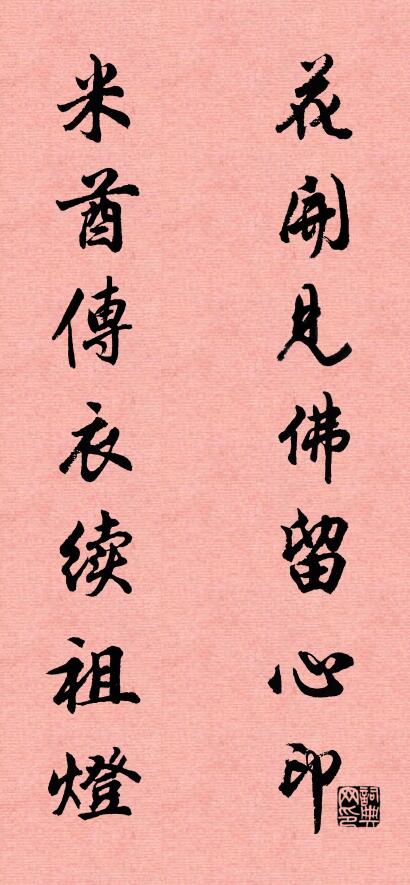 花開見佛留心印
米酋傳衣续祖燈
詞典网印